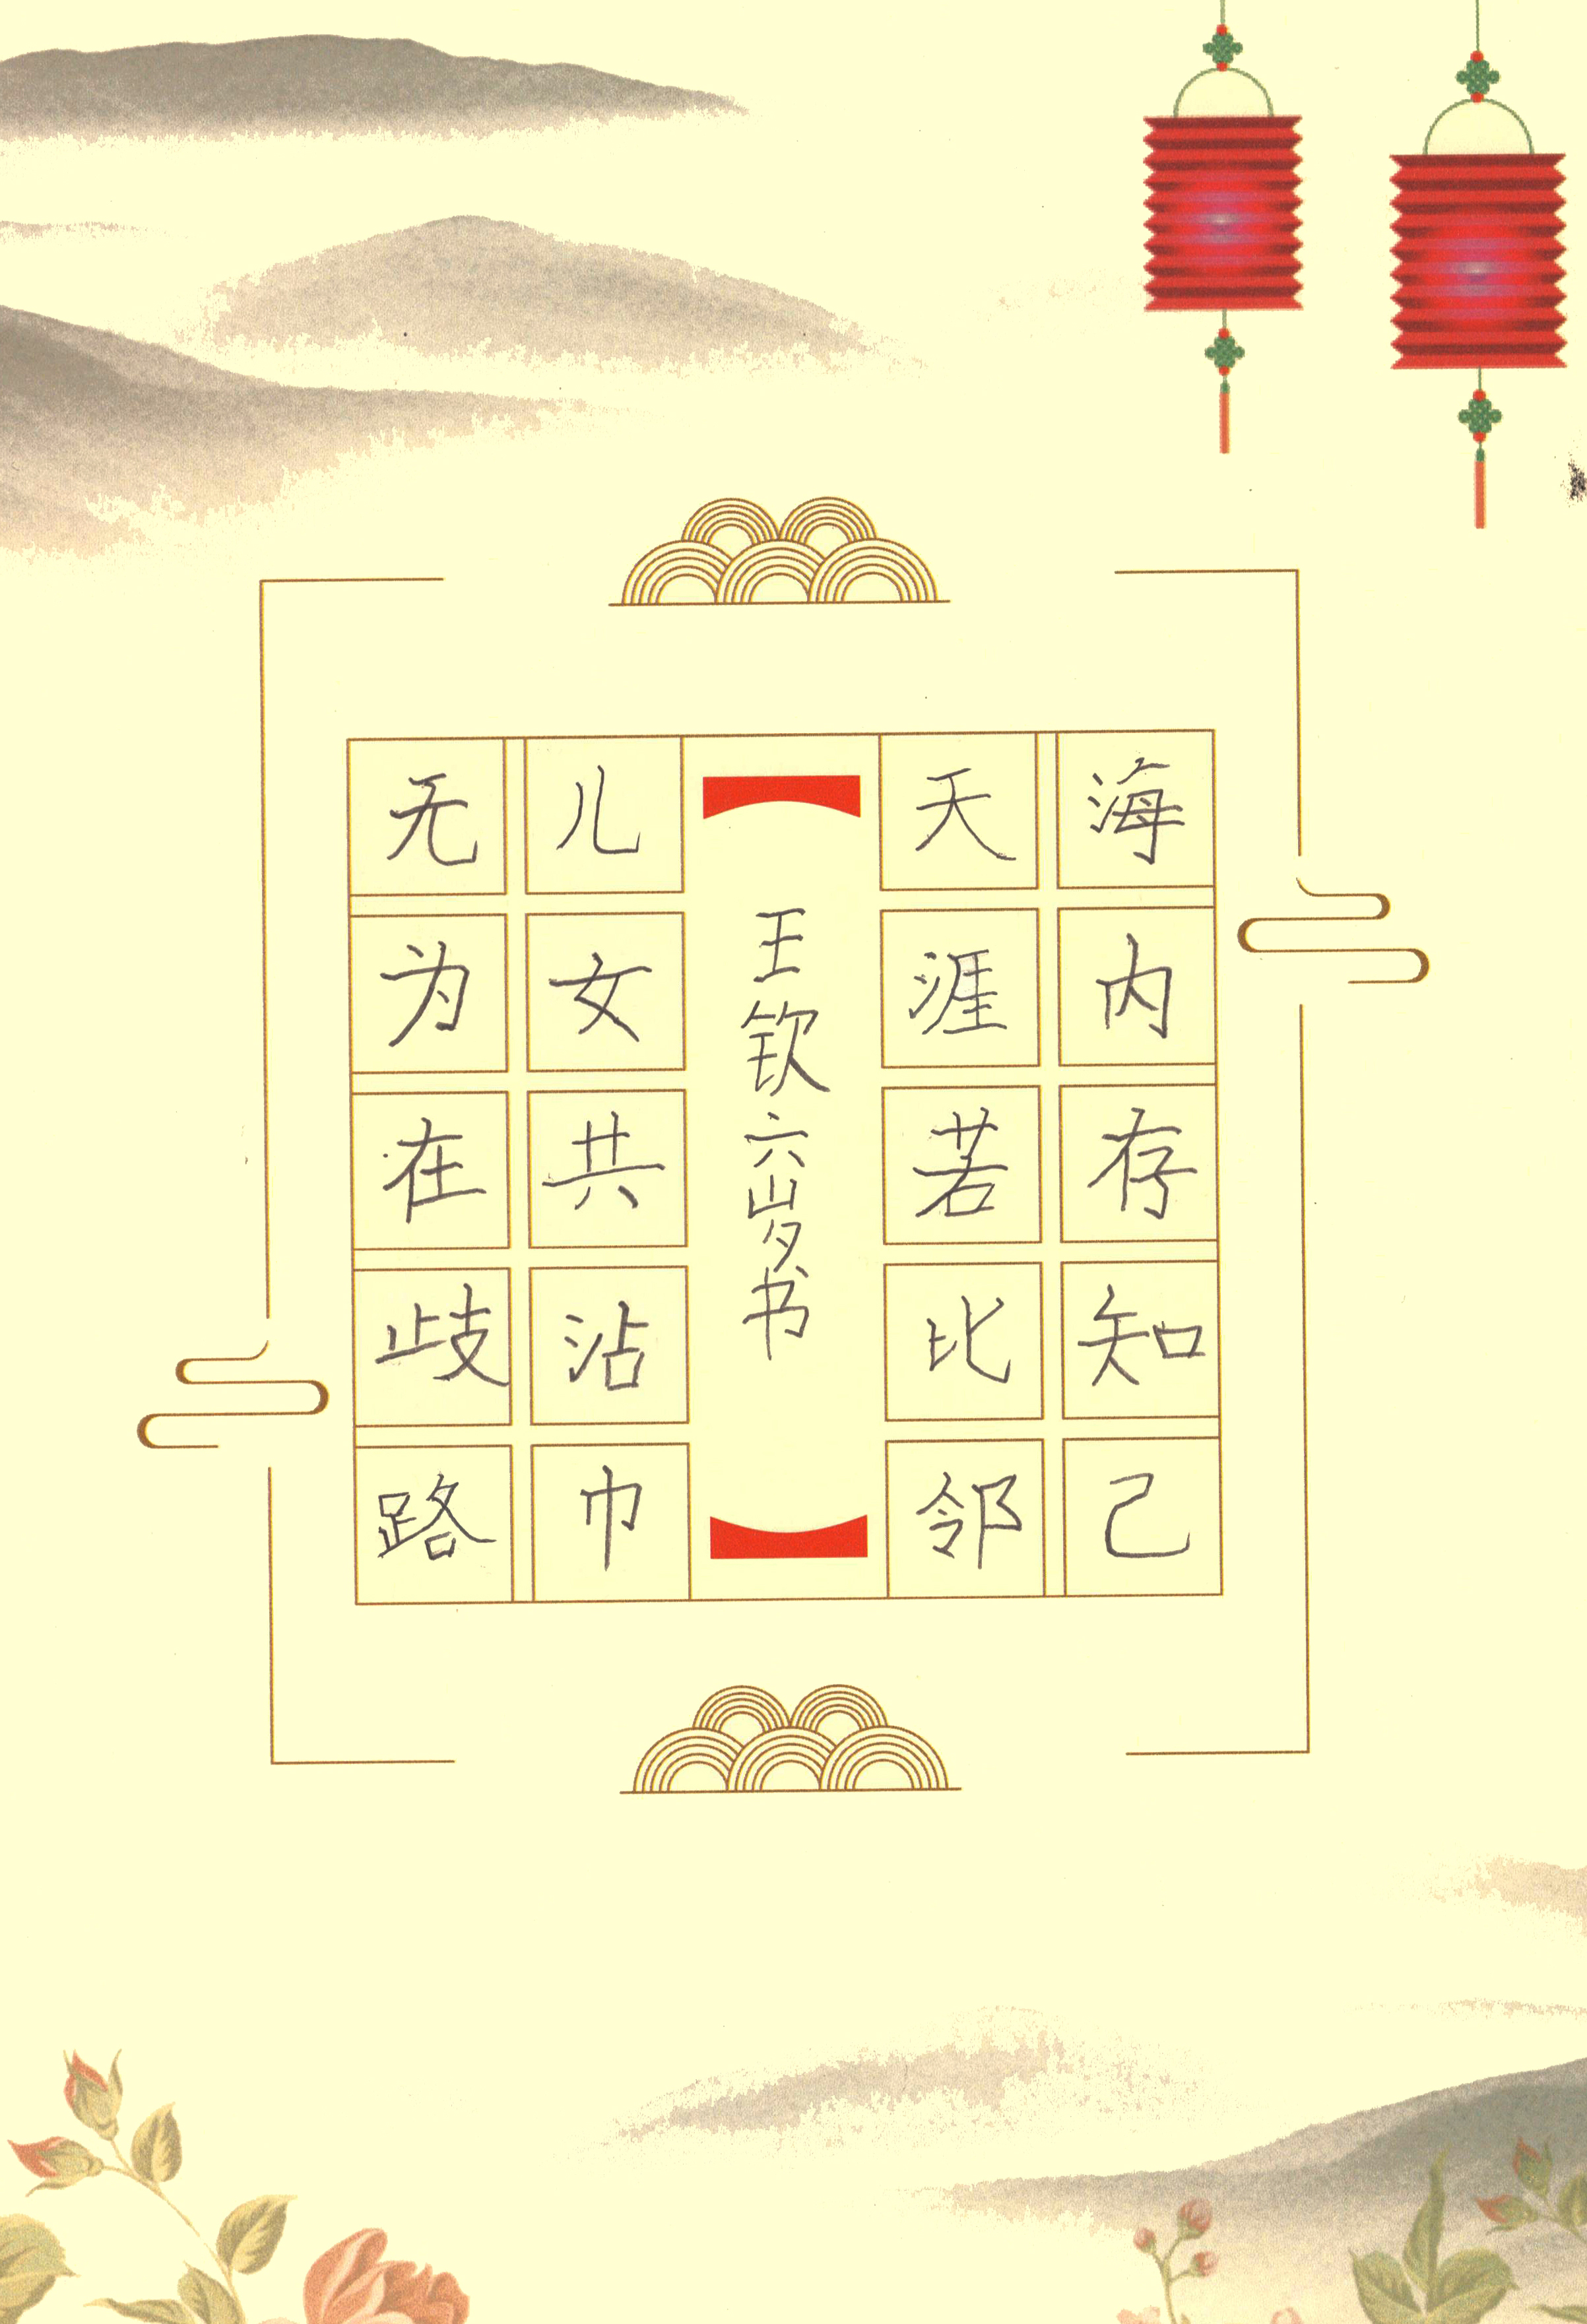 海内存知己
天涯若比邻
王钦六岁书
儿女共沾巾
无为在歧路